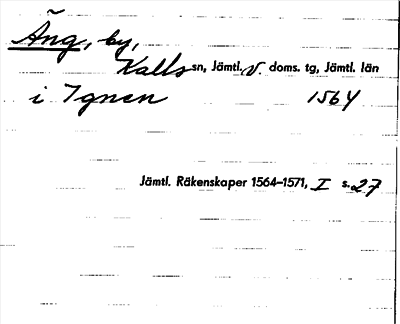 Äng, by,
Kalls sn, Jämtl. v. doms. tg, Jämtl. län
i Ignen 1564
Jämtl. Räkenskaper 1564–1571, I s. 27